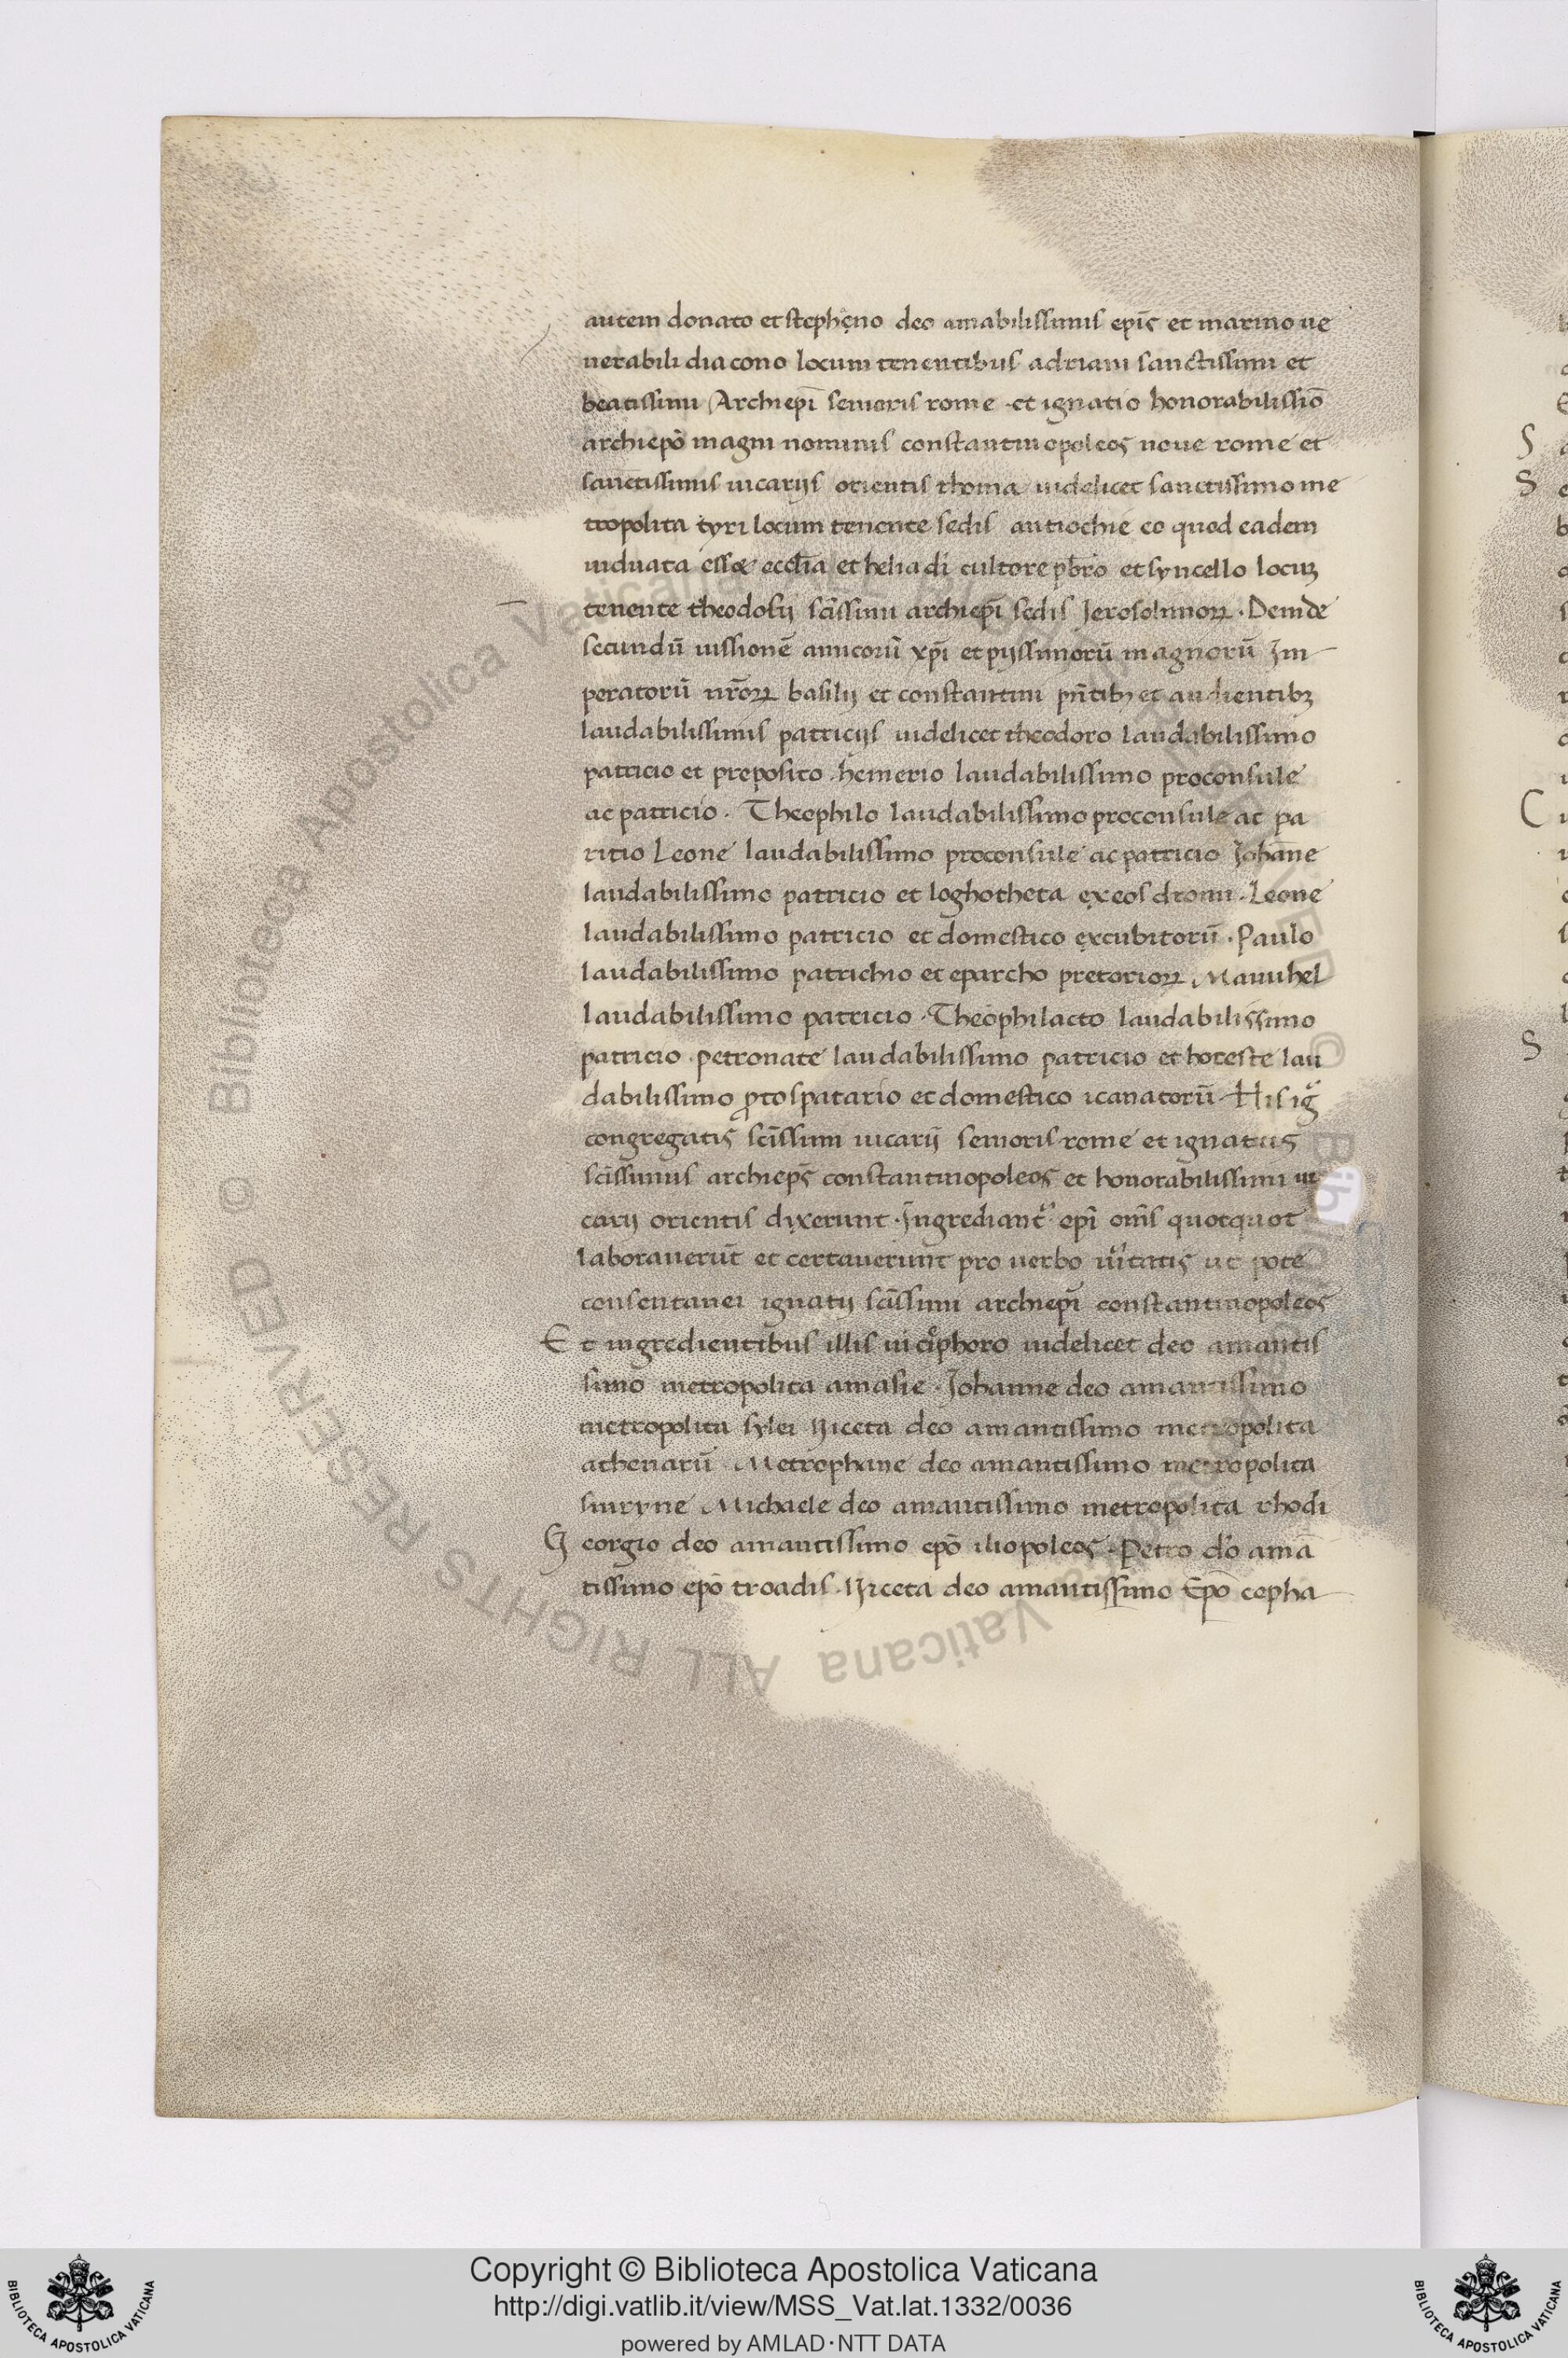 autem donato et stephęno deo amabilissimis epīs et marino ue
nerabili diacono locum tenentibus adriani sanctissimi et
beatissimi Archiepī senioris rome et ignatio honorabilissiō
archiepō magni nominis constantinopoleos noue rome et
sanctissimis uicarijs orientis thoma uidelicet sanctissimo me
tropolita tyri locum tenente sedis antiochie eo quod eadem
uiduata esset ecclīa et helia di cultore pb̄ro et syncello locuʒ
tenente theodosij sc̄issimi archiepī sedis Jerosolimoꝝ · Deinde
secundū iussionē amicorū xp̄i et pijssimorū magnorū Im
peratorū nr̄oꝝ basilij et constantini pn̄tibʒ et audientibʒ
laudabilissimis patricijs uidelicet theodoro laudabilissimo
patricio et preposito · hemerio laudabilissimo proconsule
ac patricio · Theophilo laudabilissimo proconsule ac pa
ritio Leone laudabilissimo proconsule ac patricio Johāne
laudabilissimo patricio et loghotheta exeos dromi · Leone
laudabilissimo patricio et domestico excubitorū · Paulo
laudabilissimo patrichio et eparcho pretorioꝝ Manuhel
laudabilissimo patricio · Theophilacto laudabilissimo
patricio · petronate laudabilissimo patricio et horeste lau
dabilissimo ꝓtospatario et domestico icanatorū · His ig̃
congregatis sc̄issimi uicarij senioris rome et ignatius
sc̄issimus archiepς constantinopoleos et honorabilissimi ui
carij orientis dixerunt · Ingrediant᷑ epī om̄s quotquot
laborauerūt et certauerunt pro uerbo ūitatis ut pote
consentanei ignatij sc̄issimi archiepī constantinopoleos
Et ingredientibus illis nicephoro uidelicet deo amantis
simo metropolita amasie · Johanne deo amantissimo
metropolita sylei Niceta deo amantissimo metropolita
athenarū Metrophane deo amantissimo metropolita
smryne Michaele deo amantissimo metropolita rhodi
Georgio deo amantissimo epō iliopoleos · Petro do amā
tissimo epō troadis · Niceta deo amantissimo Epō cepha
© Biblioteca Apostolica Vaticana ALL RIGHTS RESERVED
Copyright © Biblioteca Apostolica Vaticana
http://digi.vatlib.it/view/MSS_Vat.lat.1332/0036
powered by AMLAD·NTT DATA
BIBLIOTECA APOSTOLICA VATICANA
BIBLIOTECA APOSTOLICA VATICANA